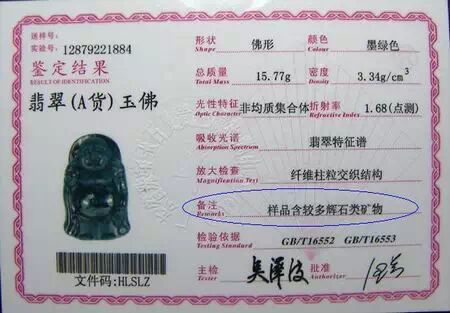 送样号:
实验号: 12879221884
鉴定结果
RESULT OF IDENTIFICATION
翡翠(A货)玉佛
文件码:HLSLZ
形状 Shape 佛形 颜色 Colour 墨绿色
总质量 Total Mass 15.77g 密度 Density 3.34g/cm³
光性特征 Optic Character 非均质集合体 折射率 Refractive Index 1.68(点测)
吸收光谱 Absorption Spectrum 翡翠特征谱
放大检查 Magnification Test 纤维柱粒交织结构
备注 Remarks 样品含较多辉石类矿物
检验依据 Testing Standard GB/T16552 GB/T16553
主检 Tester 批准 Authorizer